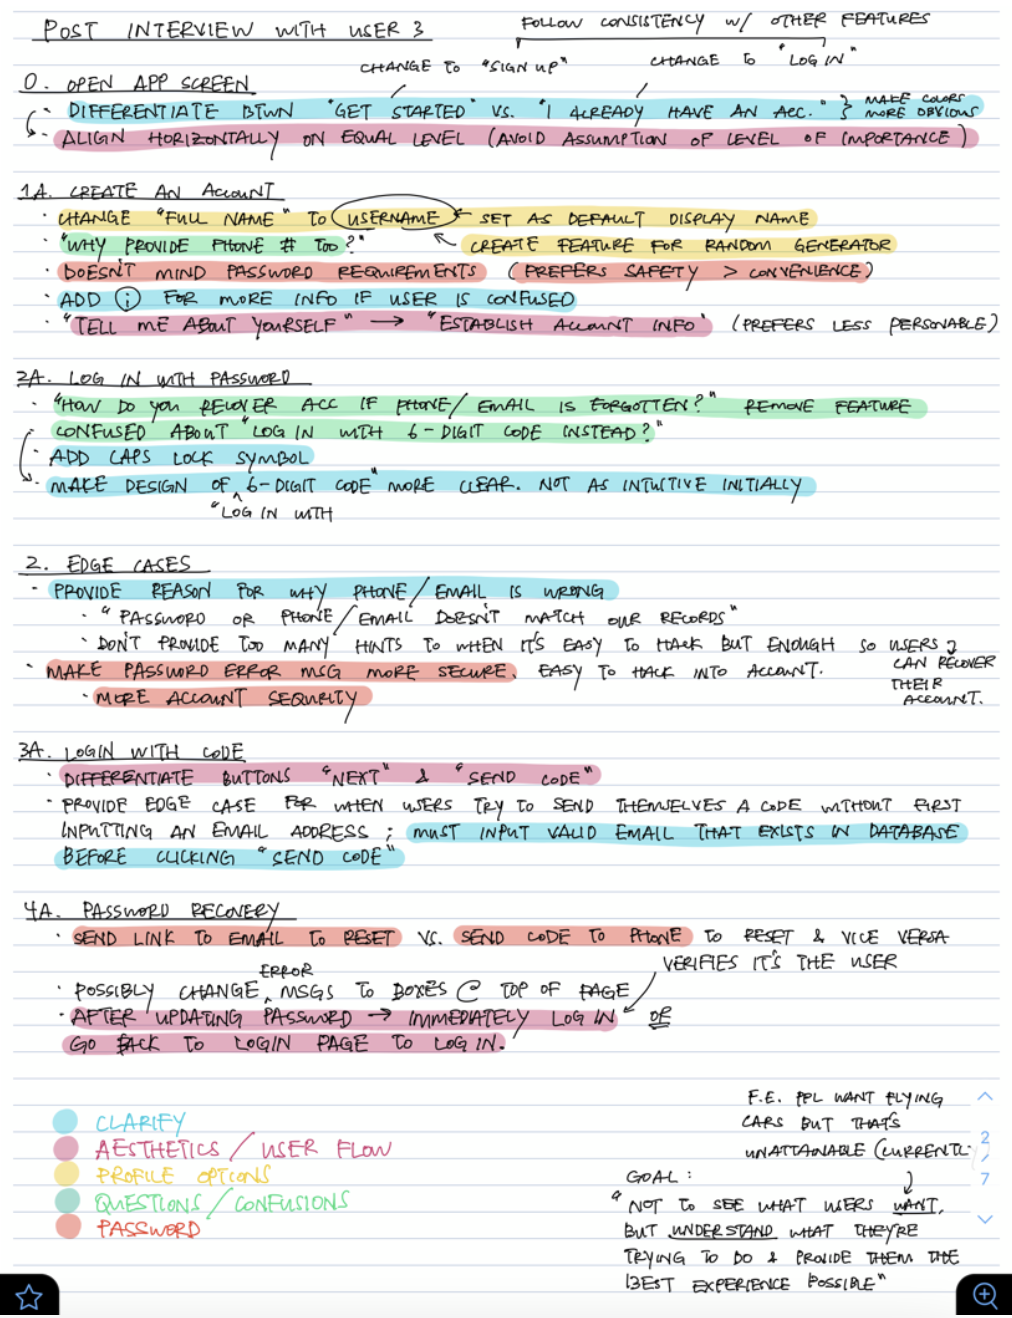 POST INTERVIEW WITH USER 3
FOLLOW CONSISTENCY W/ OTHER FEATURES
CHANGE TO "SIGN UP"
CHANGE TO "LOG IN"
0. OPEN APP SCREEN
DIFFERENTIATE BTWN "GET STARTED" VS. "I ALREADY HAVE AN ACC." } MAKE COLORS
MORE OBVIOUS
ALIGN HORIZONTALLY ON EQUAL LEVEL (AVOID ASSUMPTION OF LEVEL OF IMPORTANCE)
1A. CREATE AN ACCOUNT
· CHANGE "FULL NAME" TO USERNAME ← SET AS DEFAULT DISPLAY NAME
· "WHY PROVIDE PHONE # TOO?" CREATE FEATURE FOR RANDOM GENERATOR
· DOESN'T MIND PASSWORD REQUIREMENTS (PREFERS SAFETY > CONVENIENCE)
· ADD ⓘ FOR MORE INFO IF USER IS CONFUSED
· "TELL ME ABOUT YOURSELF" → "ESTABLISH ACCOUNT INFO" (PREFERS LESS PERSONABLE)
2A. LOG IN WITH PASSWORD
· "HOW DO YOU RECOVER ACC IF PHONE/EMAIL IS FORGOTTEN?" REMOVE FEATURE
CONFUSED ABOUT "LOG IN WITH 6-DIGIT CODE INSTEAD?"
· ADD CAPS LOCK SYMBOL
· MAKE DESIGN OF ^ 6-DIGIT CODE" MORE CLEAR. NOT AS INTUITIVE INITIALLY
"LOG IN WITH
2. EDGE CASES
· PROVIDE REASON FOR WHY PHONE/EMAIL IS WRONG
· "PASSWORD OR PHONE/EMAIL DOESN'T MATCH OUR RECORDS"
· DON'T PROVIDE TOO MANY HINTS TO WHEN IT'S EASY TO HACK BUT ENOUGH SO USERS
CAN RECOVER
THEIR
ACCOUNT.
· MAKE PASSWORD ERROR MSG MORE SECURE. EASY TO HACK INTO ACCOUNT.
· MORE ACCOUNT SEQURITY
3A. LOGIN WITH CODE
· DIFFERENTIATE BUTTONS "NEXT" & "SEND CODE"
· PROVIDE EDGE CASE FOR WHEN USERS TRY TO SEND THEMSELVES A CODE WITHOUT FIRST
INPUTTING AN EMAIL ADDRESS; MUST INPUT VALID EMAIL THAT EXISTS IN DATABASE
BEFORE CLICKING "SEND CODE"
4A. PASSWORD RECOVERY
· SEND LINK TO EMAIL TO RESET VS. SEND CODE TO PHONE TO RESET & VICE VERSA
VERIFIES IT'S THE USER
ERROR
· POSSIBLY CHANGE ^ MSGS TO BOXES @ TOP OF PAGE
· AFTER UPDATING PASSWORD → IMMEDIATELY LOG IN OR
GO BACK TO LOGIN PAGE TO LOG IN.
CLARIFY
AESTHETICS / USER FLOW
PROFILE OPTIONS
QUESTIONS / CONFUSIONS
PASSWORD
F.E. PPL WANT FLYING
CARS BUT THAT'S
UNATTAINABLE (CURRENTL
GOAL:
"NOT TO SEE WHAT USERS WANT,
BUT UNDERSTAND WHAT THEY'RE
TRYING TO DO & PROVIDE THEM THE
BEST EXPERIENCE POSSIBLE"
2
7